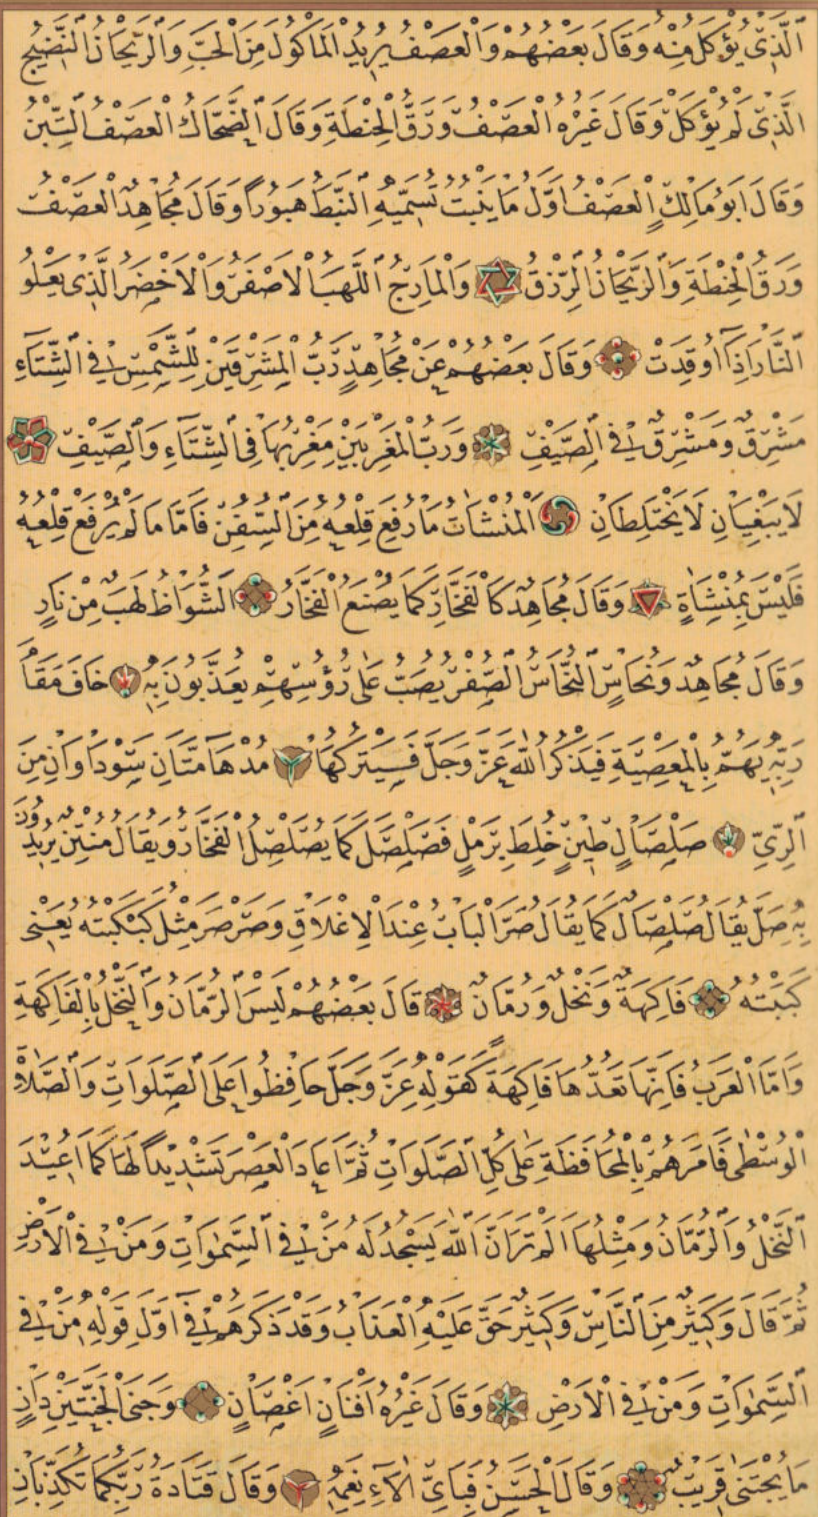 الَّذِي يُؤْكَلُ مِنْهُ وَقَالَ بَعْضُهُمْ وَالْعَصْفُ يُرِيدُ الْمَأْكُولَ مِنَ الْحَبِّ وَالرَّيْحَانُ النَّضِيجُ
الَّذِي لَمْ يُؤْكَلْ وَقَالَ غَيْرُهُ الْعَصْفُ وَرَقُ الْحِنْطَةِ وَقَالَ الضَّحَّاكُ الْعَصْفُ التِّبْنُ
وَقَالَ أَبُو مَالِكٍ الْعَصْفُ أَوَّلُ مَا يَنْبُتُ تُسَمِّيهِ النَّبَطُ هَبُورًا وَقَالَ مُجَاهِدٌ الْعَصْفُ
وَرَقُ الْحِنْطَةِ وَالرَّيْحَانُ الرِّزْقُ وَالْمَارِجُ اللَّهَبُ الْأَصْفَرُ وَالْأَخْضَرُ الَّذِي يَعْلُو
النَّارَ إِذَا أُوقِدَتْ وَقَالَ بَعْضُهُمْ عَنْ مُجَاهِدٍ رَبُّ الْمَشْرِقَيْنِ لِلشَّمْسِ فِي الشِّتَاءِ
مَشْرِقٌ وَمَشْرِقٌ فِي الصَّيْفِ وَرَبُّ الْمَغْرِبَيْنِ مَغْرِبُهَا فِي الشِّتَاءِ وَالصَّيْفِ
لَا يَبْغِيَانِ لَا يَخْتَلِطَانِ الْمُنْشَآتُ مَا رُفِعَ قِلْعُهُ مِنَ السُّفُنِ فَأَمَّا مَا لَمْ يُرْفَعْ قِلْعُهُ
فَلَيْسَ بِمُنْشَأَةٍ وَقَالَ مُجَاهِدٌ كَالْفَخَّارِ كَمَا يُصْنَعُ الْفَخَّارُ الشُّوَاظُ لَهَبٌ مِنْ نَارٍ
وَقَالَ مُجَاهِدٌ وَنُحَاسٌ النُّحَاسُ الصُّفْرُ يُصَبُّ عَلَى رُؤُسِهِمْ يُعَذَّبُونَ بِهِ خَافَ مَقَامَ
رَبِّهِ يَهُمُّ بِالْمَعْصِيَةِ فَيَذْكُرُ اللّٰهَ عَزَّ وَجَلَّ فَيَتْرُكُهَا مُدْهَامَّتَانِ سَوْدَاوَانِ مِنَ
الرِّيِّ صَلْصَالٍ طِينٍ خُلِطَ بِرَمْلٍ فَصَلْصَلَ كَمَا يُصَلْصِلُ الْفَخَّارُ وَيُقَالُ مُنْتِنٌ يُرِيدُونَ
بِهِ صَلَّ يُقَالُ صَلْصَالٌ كَمَا يُقَالُ صَرَّ الْبَابُ عِنْدَ الْإِغْلَاقِ وَصَرْصَرَ مِثْلُ كَبْكَبْتُهُ يَعْنِي
كَبَبْتُهُ فَاكِهَةٌ وَنَخْلٌ وَرُمَّانٌ قَالَ بَعْضُهُمْ لَيْسَ الرُّمَّانُ وَالنَّخْلُ بِالْفَاكِهَةِ
وَأَمَّا الْعَرَبُ فَإِنَّهَا تَعُدُّهَا فَاكِهَةً كَقَوْلِهِ عَزَّ وَجَلَّ حَافِظُوا عَلَى الصَّلَوَاتِ وَالصَّلَاةِ
الْوُسْطَى فَأَمَرَهُمْ بِالْمُحَافَظَةِ عَلَى كُلِّ الصَّلَوَاتِ ثُمَّ أَعَادَ الْعَصْرَ تَشْدِيدًا لَهَا كَمَا أُعِيدَ
النَّخْلُ وَالرُّمَّانُ وَمِثْلُهَا أَلَمْ تَرَ أَنَّ اللّٰهَ يَسْجُدُ لَهُ مَنْ فِي السَّمٰوَاتِ وَمَنْ فِي الْأَرْضِ
ثُمَّ قَالَ وَكَثِيرٌ مِنَ النَّاسِ وَكَثِيرٌ حَقَّ عَلَيْهِ الْعَذَابُ وَقَدْ ذَكَرَهُمْ فِي أَوَّلِ قَوْلِهِ مَنْ فِي
السَّمٰوَاتِ وَمَنْ فِي الْأَرْضِ وَقَالَ غَيْرُهُ أَفْنَانٍ أَغْصَانٍ وَجَنَى الْجَنَّتَيْنِ دَانٍ
مَا يُجْتَنَى قَرِيبٌ وَقَالَ الْحَسَنُ فَبِأَيِّ آلَاءِ نِعَمِهِ وَقَالَ قَتَادَةُ رَبِّكُمَا تُكَذِّبَانِ